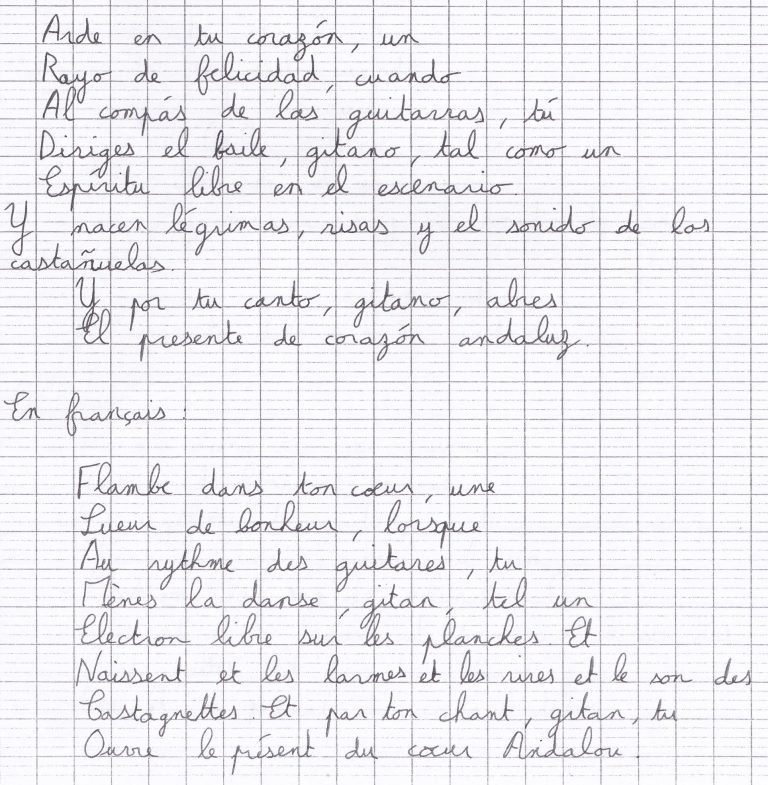 Arde en tu corazón, un
Rayo de felicidad, cuando
Al compás de las guitarras, tú
Diriges el baile, gitano, tal como un
Espíritu libre en el escenario.
Y nacen légrimas, risas y el sonido de las
castañuelas.
Y por tu canto, gitano, abres
El presente de corazón andaluz.
En français :
Flambe dans ton coeur, une
Lueur de bonheur, lorsque
Au rythme des guitares, tu
Mènes la danse, gitan, tel un
Electron libre sur les planches. Et
Naissent et les larmes et les rires et le son des
Castagnettes. Et par ton chant, gitan, tu
Ouvre le présent du coeur Andalou.